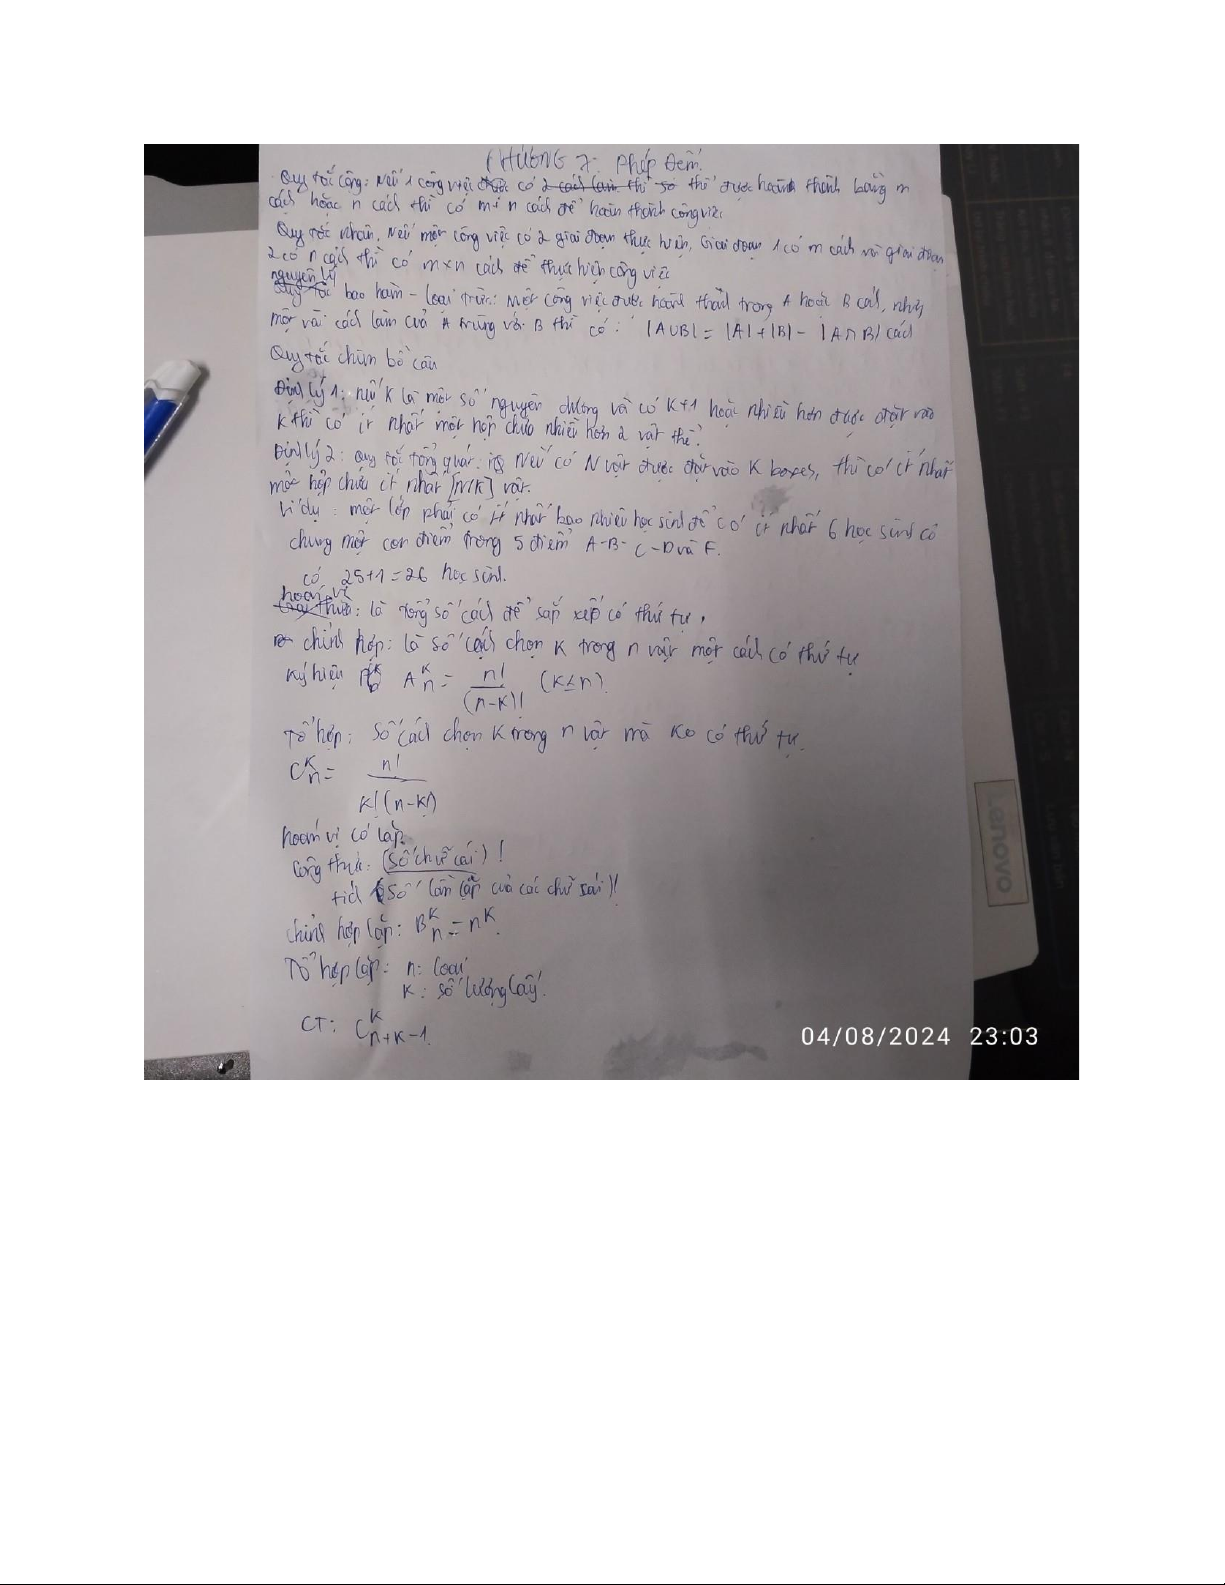 CHƯƠNG 7: Phép Đếm
Quy tắc cộng: Nếu 1 công việc được có 2 cách làm thì số thì được hoành thành bằng m
cách hoặc n cách thì có m+n cách để hoàn thành công việc
Quy tắc nhân. Nếu một công việc có 2 giai đoạn thực hiện, Giai đoạn 1 có m cách và giai đoạn
2 có n cách thì có m×n cách để thực hiện công việc
nguyên lý
Quy tắc bao hàm - loại trừ: Một công việc được hoành thành trong A hoặc B cách, nhưng
một vài cách làm của A trùng với B thì có: |A∪B| = |A|+|B| - |A∩B| cách
Quy tắc chuồn bồ câu
Định lý 1: nếu K là một số nguyên dương và có K+1 hoặc nhiều hơn được đặt vào
K thì có ít nhất một hộp chứa nhiều hơn 2 vật thể.
Định lý 2: Quy tắc tổng quát: Nếu có N vật được đặt vào K boxes, thì có ít nhất
một hộp chứa ít nhất ⌈N/K⌉ vật.
Ví dụ: một lớp phải có ít nhất bao nhiêu học sinh để có ít nhất 6 học sinh có
chung một con điểm trong 5 điểm A-B-C-D và F.
có 25+1=26 học sinh.
hoán vị
Giai thừa: là tổng số cách để sắp xếp có thứ tự.
chỉnh hợp: là số cách chọn K trong n vật một cách có thứ tự
Ký hiệu A^K_n = n!/(n-K)! (K≤n)
Tổ hợp: Số cách chọn K trong n vật mà ko có thứ tự.
C^K_n = n!/K!(n-K)
hoán vị có lặp.
Công thức: (Số chữ cái)!
tích (Số lần lặp của các chữ cái)!
Chỉnh hợp lặp: B^K_n = n^K.
Tổ hợp lặp: n: loại
K: số lượng lấy.
CT: C^K_n+K-1.
Lenovo
04/08/2024 23:03